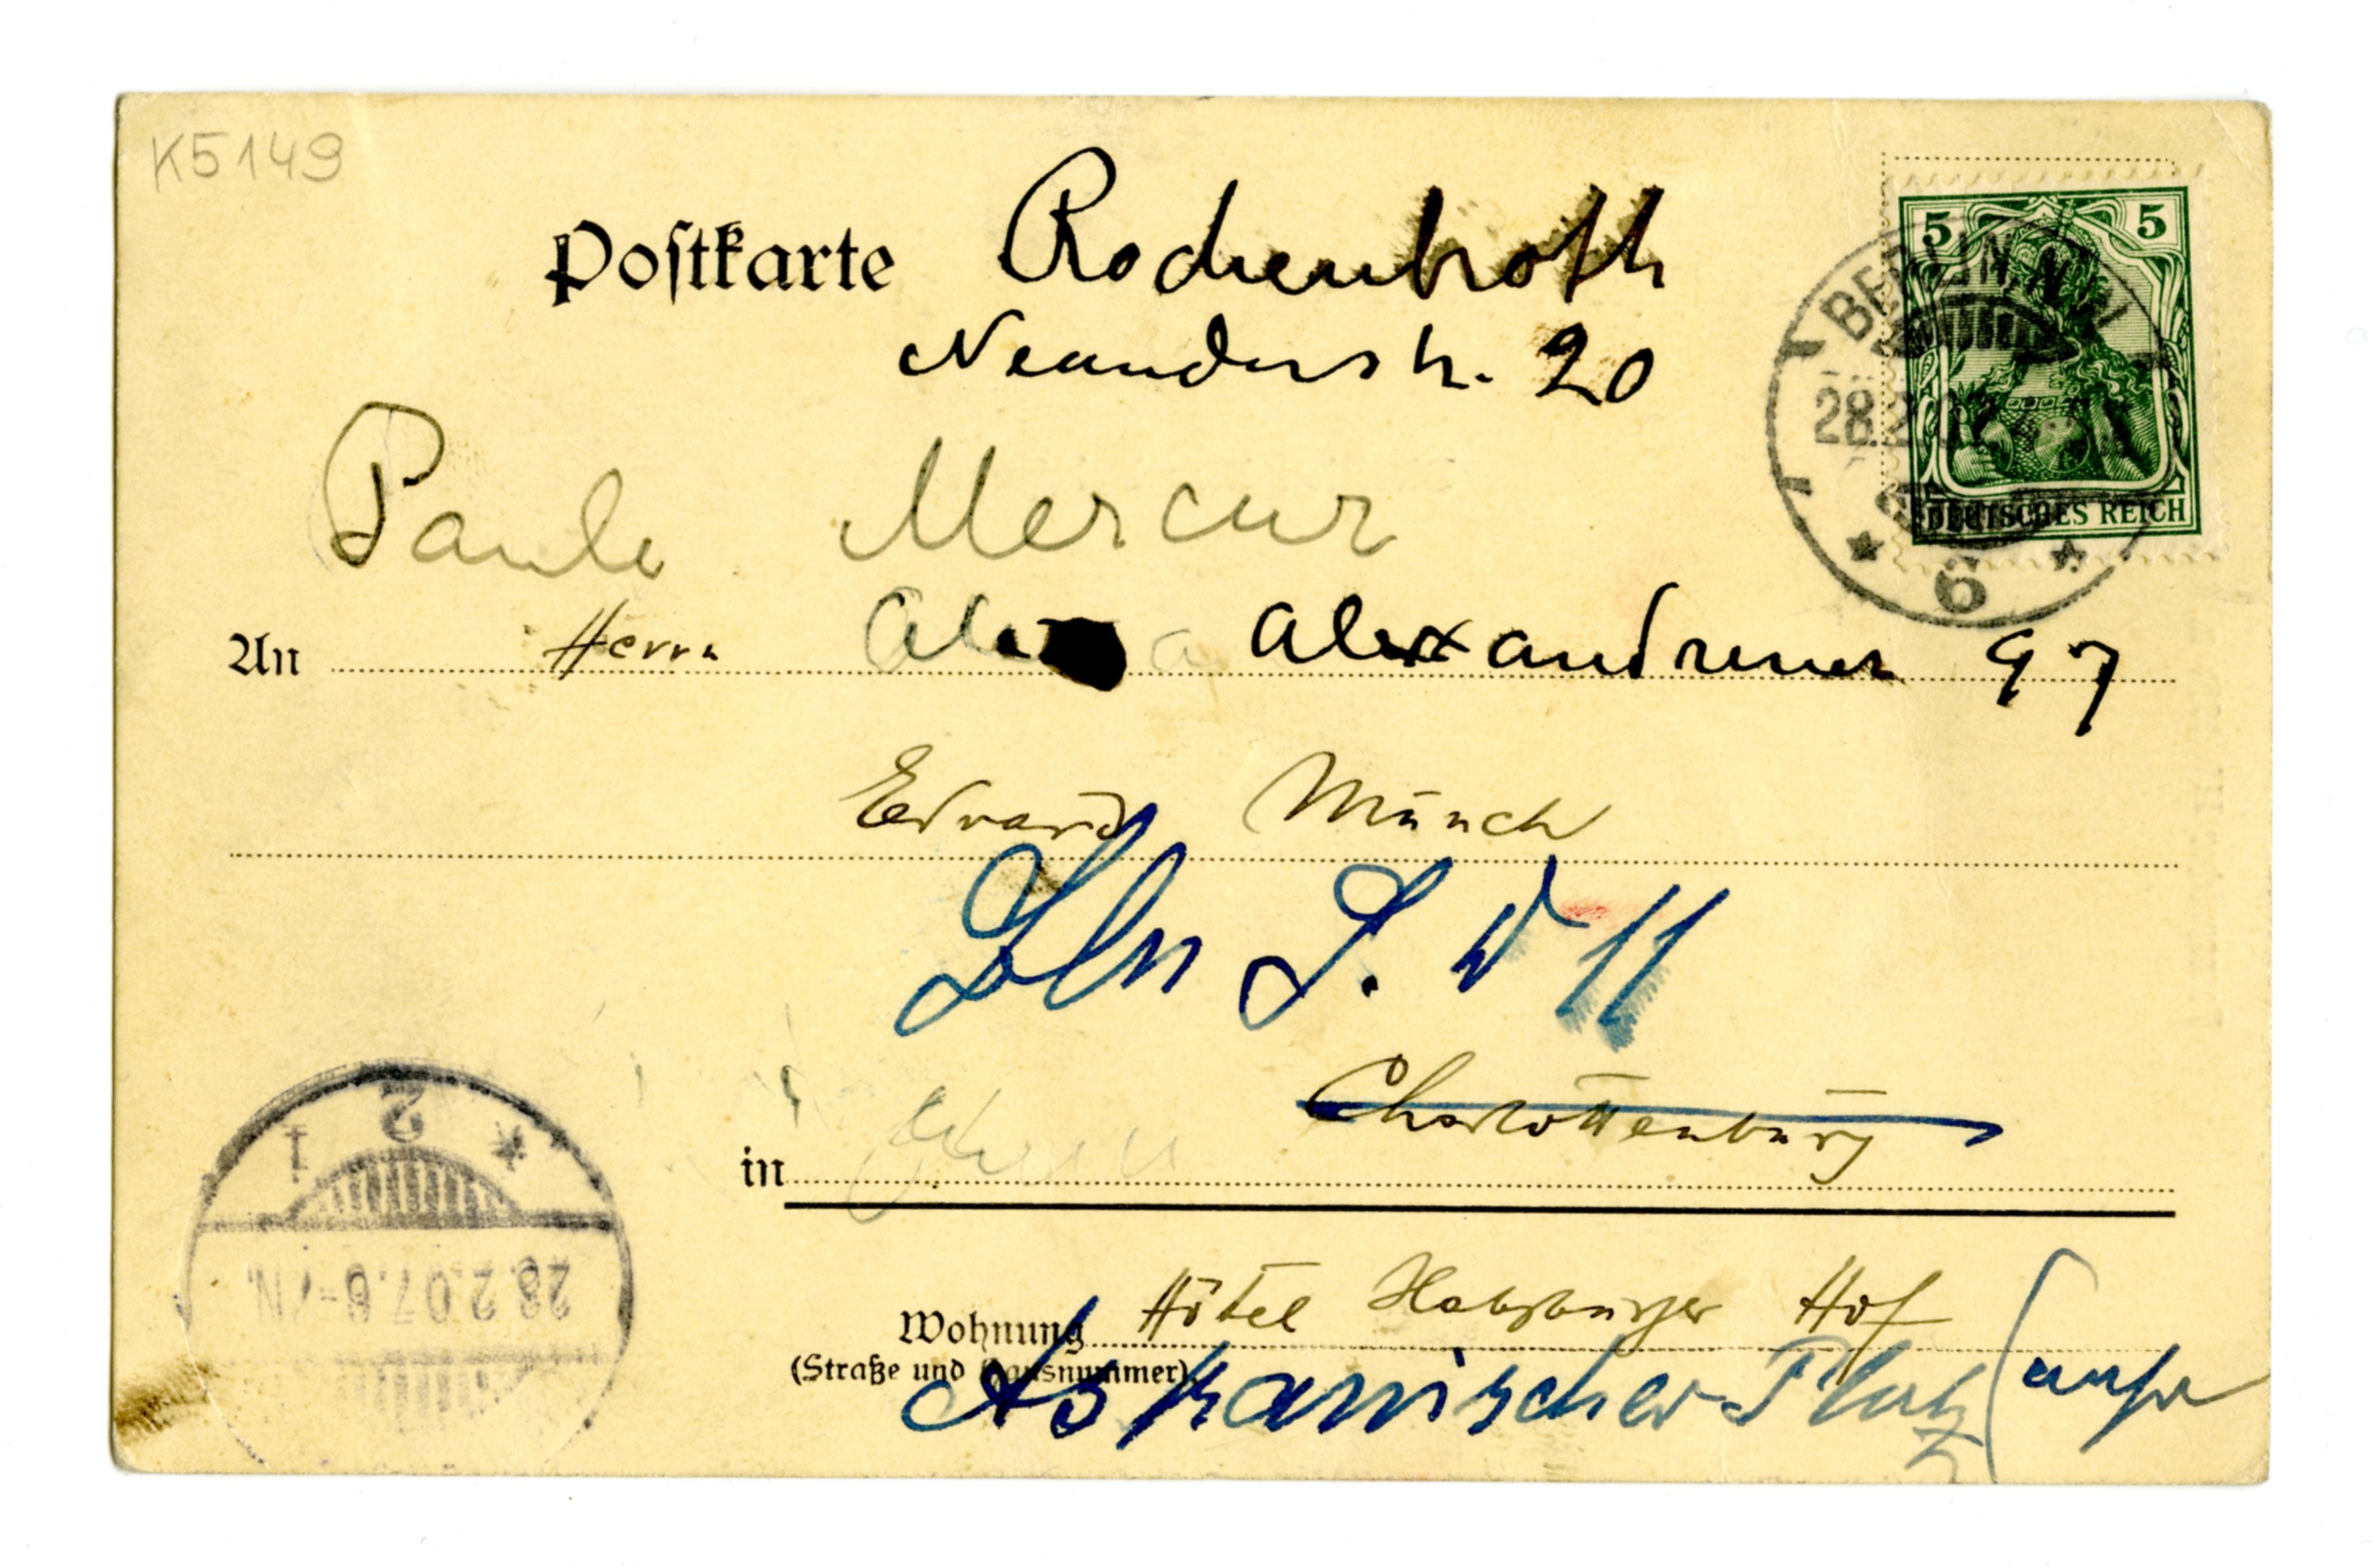 K5149
Postkarte Rochenbroth
Neanderstr. 20
5 5
BERLIN
28.2.07
DEUTSCHES REICH
6
Paule Mercur
An Herrn Alexandrinen 97
Edvard Münch
Bln S. W 11
in Charlottenburg
2
1
28.2.07.6-7N.
Wohnung Hôtel Habsburger Hof
(Straße und Hausnummer)
Askanischer Platz